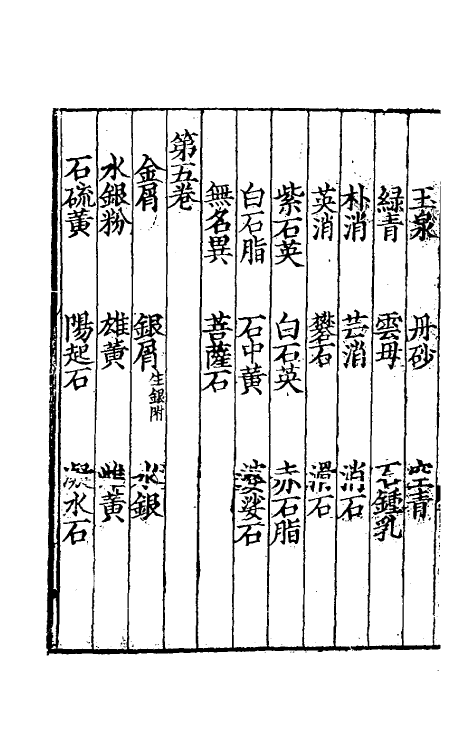 玉泉　丹砂　空青
緑青　雲母　石鍾乳
朴消　芒消　消石
英消　礬石　滑石
紫石英　白石英　赤石脂
白石脂　石中黃　婆娑石
無名異　菩薩石
第五卷
金屑　銀屑生銀附　水銀
水銀粉　雄黃　雌黃
石硫黃　陽起石　凝水石